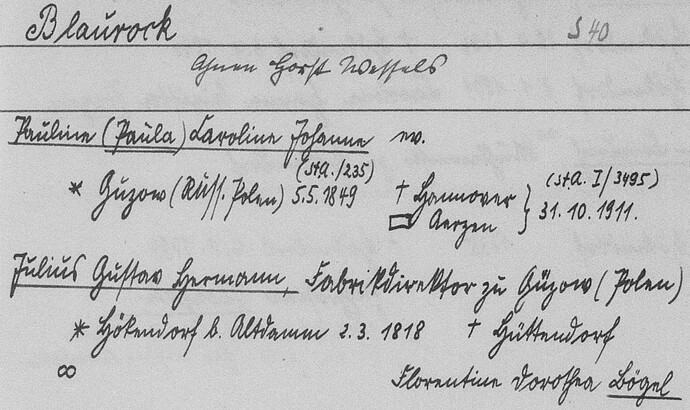 Blaurock S 40
Ahnen Horst Wessels
Pauline (Paula) Caroline Johanne ev.
(St.A./235) (St.A. I/3495)
* Guzow (Russ. Polen) 5.5.1849 † Hannover } 31.10.1911.
▭ Aerzen
Julius Gustav Hermann, Fabrikdirektor zu Güzow (Polen)
* Hökendorf b. Altdamm 2.3.1818 † Hüttendorf
∞ Florentine Dorothea Bögel